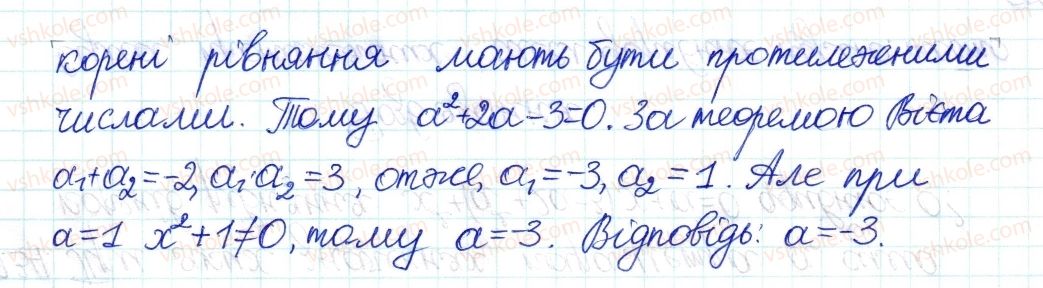 корені рівняння мають бути протилежними
числами. Тому a²+2a-3=0. За теоремою Вієта
a₁+a₂=-2, a₁·a₂=3, отже, a₁=-3, a₂=1. Але при
a=1 x²+1≠0, тому a=-3. Відповідь: a=-3.